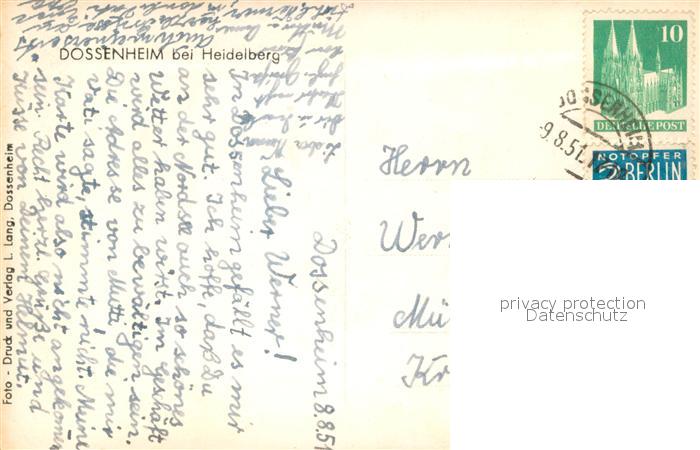 DOSSENHEIM bei Heidelberg
Foto - Druck und Verlag L. Lang, Dossenheim
10
DEUTSCHE POST
NOTOPFER
2 BERLIN
DOSSENHEIM
9.8.51
Dossenheim 8.8.51
Lieber Werner!
In Dossenheim gefällt es mir
sehr gut. Ich hoffe, daß Du
an der Nordsee auch so schönes
Wetter haben wirst. Im Geschäft
wird alles zu bewältigen sein.
Die Adresse von Mutti, die mir
Vati sagte, stimmte nicht. Meine
Karte wird also nicht angekommen
sein. Recht herzl. Grüße und
Küsse von Deinem Helmut.
Auch meinerseits
Herrn
Wer
Mü
Kr
privacy protection
Datenschutz